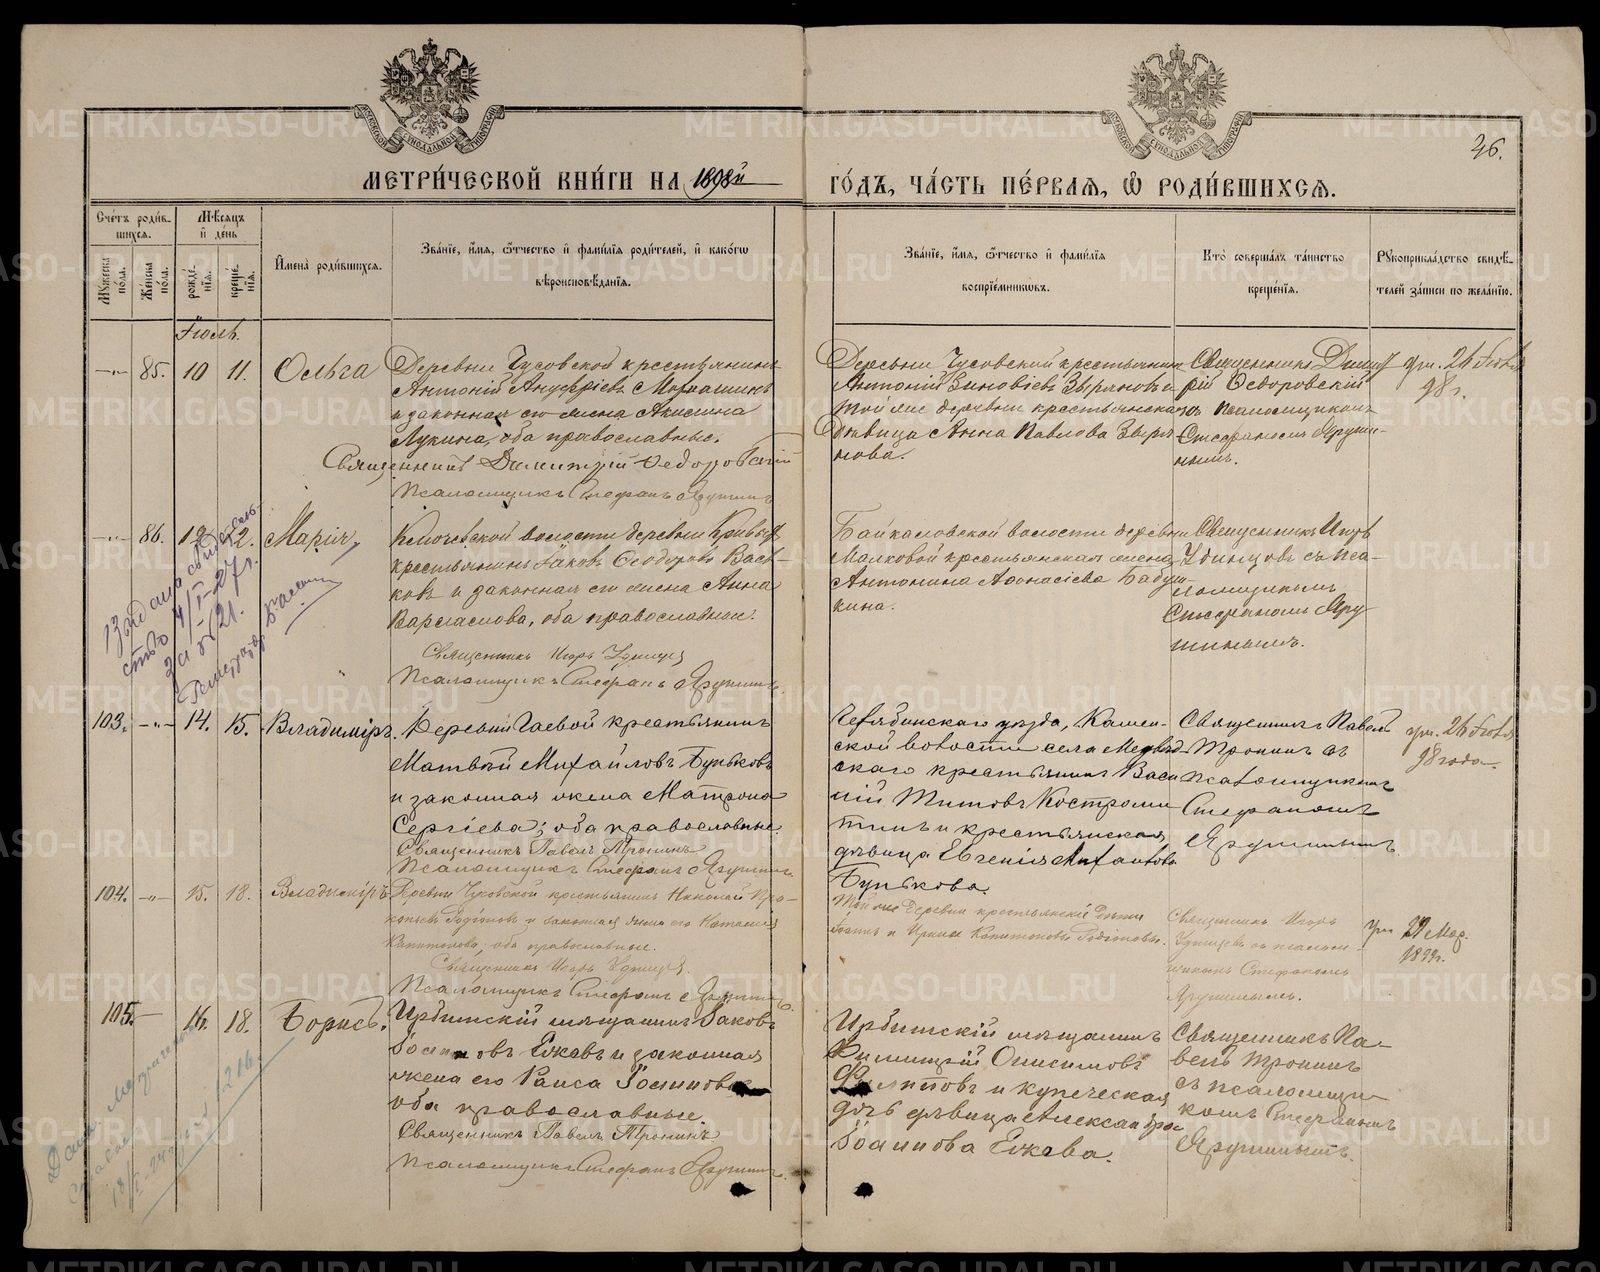 МЕТРИ́ЧЕСКОЙ КНИ́ГИ НА 1898й
ГО́ДЪ, ЧА́СТЬ ПЕ́РВАЯ, Ѽ РОДИ́ВШИХСЯ.
36.
Сче́тъ роди́в-
шихся.
Мѣсяцъ
и҆ де́нь
Му́жеска по́ла.
Же́нска по́ла.
рожде́-
нїя.
креще́-
нїя.
И҆мена̀ роди́вшихся.
Зва́нїе, и҆́мя, ѻ҆́тчество и҆ фами́лїя роди́телей, и҆ како́гѡ
вѣроисповѣ́данїя.
Зва́нїе, и҆́мя, ѻ҆́тчество и҆ фами́лїя
воспрїе́мниковъ.
Кто̀ соверша́лъ та́инство
креще́нїя.
Рꙋкоприкла́дство свидѣ́-
телей за́писи по жела́нїю.
Іюль.
85. 10 11. Ольга
Деревни Чусовской крестьянинъ
Антоній Ануфріевъ
и законная его жена Аксинья
Лукина, оба православные.
Священникъ Димитрій Ѳедоровскій
Псаломщикъ Стефанъ Ярушинъ
Деревни Чусовской крестьянинъ
Антоній Зиновіевъ Зыряновъ и
той же деревни крестьянская
дѣвица Анна Павлова Зыря-
нова.
Священникъ Димит-
рій Ѳедоровскій
съ псаломщикомъ
Стефаномъ Яруши-
нымъ.
98 г.
86. 12 12. Марія
Ключевской волости деревни
крестьянинъ Іаковъ Ѳеодоровъ Вась-
ковъ и законная его жена Анна
Варламова, оба православные.
Священникъ Игорь Удинцев
Псаломщикъ Стефанъ Ярушинъ.
Байкаловской волости деревни
Малковой крестьянская жена
Антонина Аѳонасіева Бабуш-
кина.
Священникъ Игорь
Удинцовъ съ пса-
ломщикомъ
Стефаномъ Яру-
шинымъ.
103. 14. 15. Владиміръ.
Деревни Гаевой крестьянинъ
Матвѣй Михайловъ Буньковъ
и законная жена Матрона
Сергіева; оба православные.
Священникъ Павелъ Тронинъ
Псаломщикъ Стефанъ Ярушинъ
Челябинскаго уѣзда, Камен-
ской волости села Медвѣд-
скаго крестьянинъ Васи-
лій Титовъ Костроми-
тинъ и крестьянская
дѣвица Евгенія Михаилова
Бунькова.
Священникъ Павелъ
Тронинъ съ
псаломщикомъ
Стефаномъ
Ярушинымъ
98 года.
104. 15. 18. Владиміръ
Деревни Чусовской крестьянинъ Николай Про-
копьевъ Родіоновъ и законная жена его Наталія
Капитонова, оба православные.
Священникъ Игорь Удинцев.
Псаломщикъ Стефанъ Ярушинъ.
Той же деревни крестьянскіе дѣти
Іоаннъ и Ирина Капитоновы Родіоновы.
Священникъ Игорь
Удинцевъ съ псалом-
щикомъ Стефаномъ
Ярушинымъ.
29 Мар.
1899г.
105. 16. 18. Борисъ.
Ирбитскій мѣщанинъ Іаковъ
Іоанновъ Ежовъ и законная
жена его Раиса Іоаннова
оба православные
Священникъ Павелъ Тронинъ
Псаломщикъ Стефанъ Ярушинъ.
Ирбитскій мѣщанинъ
Филицій Онисимовъ
Филиповъ и купеческая
дочь дѣвица Александра
Іоаннова Ежова.
Священникъ Па-
велъ Тронинъ
съ псаломщи-
комъ Стефаномъ
Ярушинымъ.
Выдано свидѣтель-
ство 4/I-27г.
за №21.